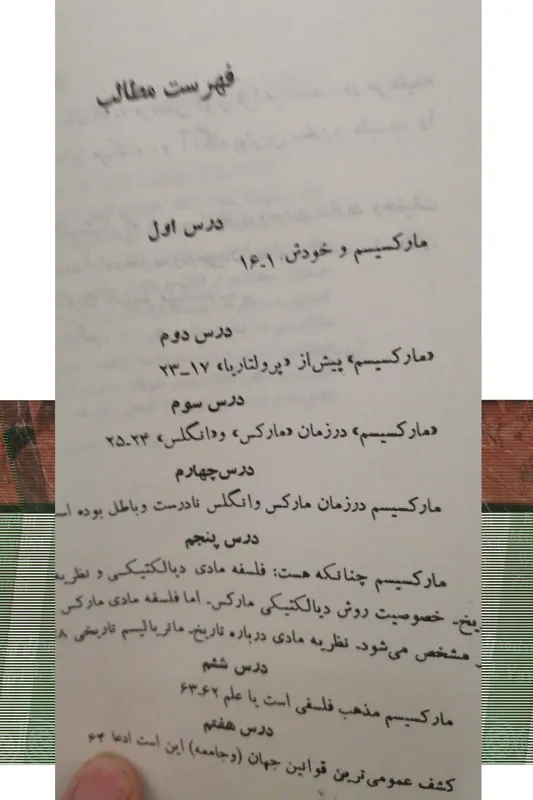 فهرست مطالب
درس اول
مارکسیسم و خودش. ۱ـ۱۶
درس دوم
«مارکسیسم» پیش از «پرولتاریا» ۱۷ـ۲۳
درس سوم
«مارکسیسم» درزمان «مارکس» و «انگلس» ۲۴ـ۲۵
درس چهارم
مارکسیسم درزمان مارکس وانگلس نادرست وباطل بوده
درس پنجم
مارکسیسم چنانکه هست: فلسفه مادی دیالکتیکی و نظریه
خصوصیت روش دیالکتیکی مارکس. اما فلسفه مادی مارکس
مشخص می‌شود. نظریه مادی درباره تاریخ. ماتریالیسم تاریخی
درس ششم
مارکسیسم مذهب فلسفی است یا علم ۶۲ـ۶۳
درس هفتم
کشف عمومی‌ترین قوانین جهان (وجامعه) این است ادعا ۶۴